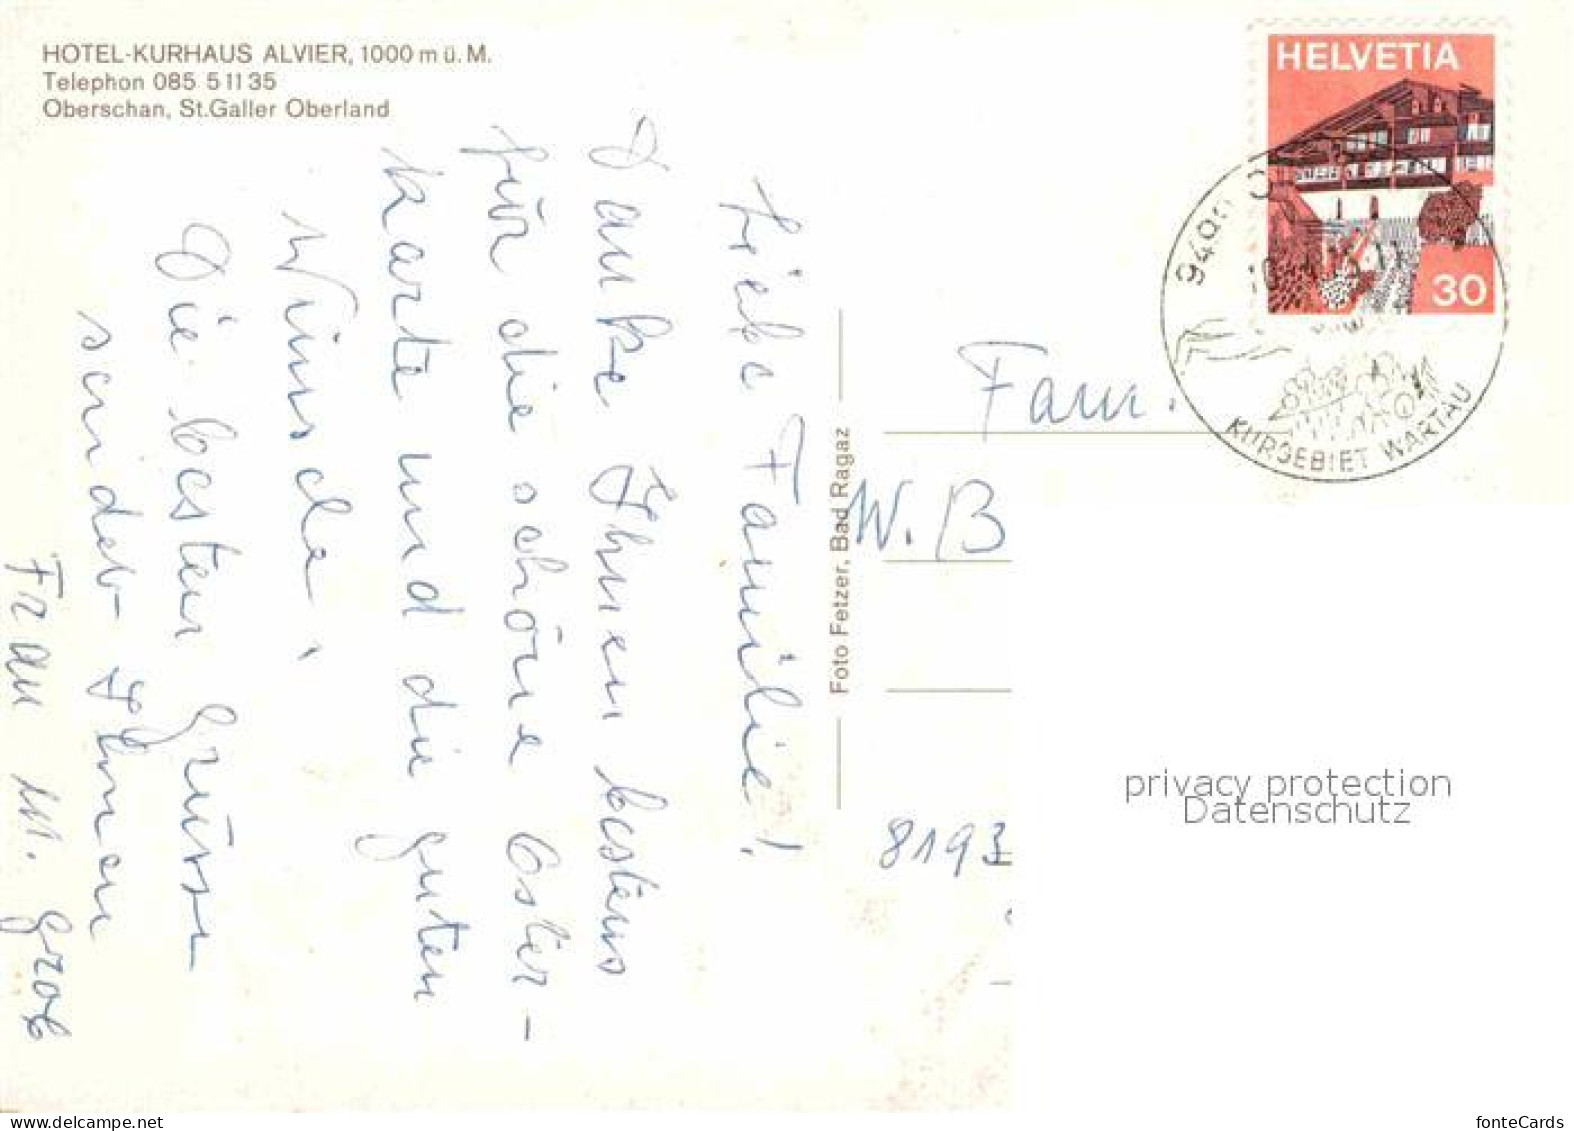 HOTEL-KURHAUS ALVIER, 1000 m ü. M.
Telephon 085 5 11 35
Oberschan, St.Galler Oberland
Liebe Familie!
Danke Ihnen bestens
für die schöne Oster-
karte und die guten
Wünsche.
Die besten Grüsse
sendet Ihnen
Frau M. Grob
Foto Fetzer, Bad Ragaz
HELVETIA
30
KURGEBIET WARTAU
Fam.
W. B
8193
privacy protection
Datenschutz
fonteCards
my ansichtskarte.com